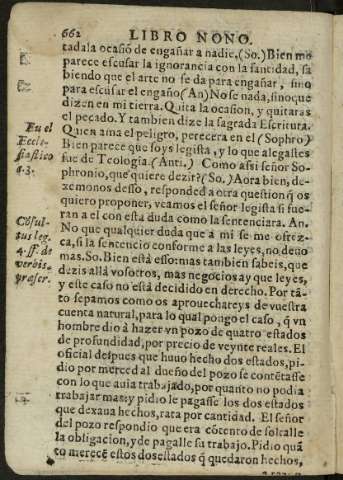 662 LIBRO NONO.
tadala ocasiõ de engañar a nadie. (So.) Bien me
parece escusar la ignorancia con la santidad, sa
biendo que el arte no se da para engañar, sino
para escusar el engaño (An) No se nada, sino que
dizen en mi tierra. Quita la ocasion, y quitaras
el pecado. Y tambien dize la sagrada Escritura.
Quen ama el peligro, perecera en el (Sophro)
Bien parece que soys legista, y lo que alegastes
fue de Teologia. (Anti.) Como assi señor So-
phronio, que quiere dezir? (So.) Aora bien, de-
xemonos desso, responded a otra question q̃ os
quiero proponer, veamos el señor legista si fue-
ran a el con esta duda como la sentenciara. An.
No que qualquier duda que a mi se me ofrez-
ca, si la sentencio conforme a las leyes, no deuo
mas. So. Bien està esso: mas tambien sabeis, que
dezis allà vosotros, mas negocios ay que leyes,
y este caso no està decidido en derecho. Por tã-
to sepamos como os aprouechareys de vuestra
cuenta natural, para lo qual pongo el caso, q̃ vn
hombre dio à hazer vn pozo de quatro estados
de profundidad, por precio de veynte reales. El
oficial despues que huuo hecho dos estados, pi-
dio por merced al dueño del pozo se contẽtasse
con lo que auia trabajado, por quanto no podia
trabajar mas: y pidio le pagasse los dos estados
que dexaua hechos, rata por cantidad. El señor
del pozo respondio que era cõtento de soltalle
la obligacion, y de pagalle su trabajo. Pidio quã
to merecẽ estos dos estados q̃ quedaron hechos,
En el
Eccle-
siastico
c. 3.
Cõsul-
tus leg.
4. ff. de
verbis,
præscr.